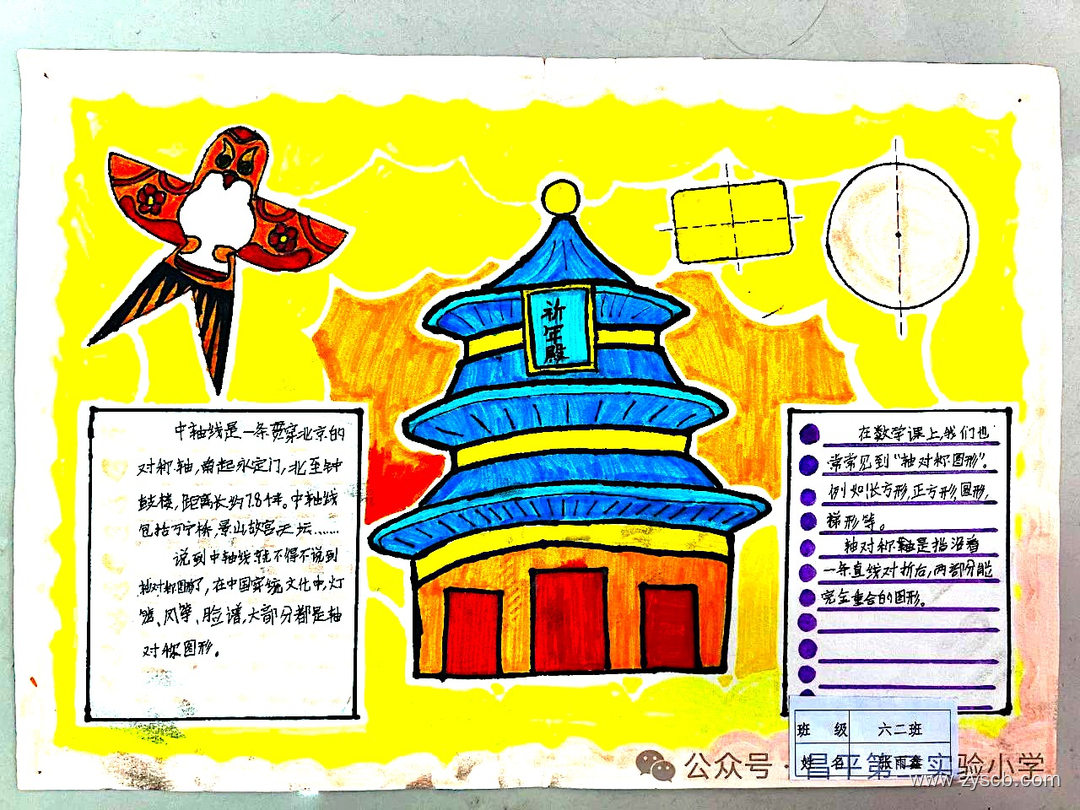 祈年殿
中轴线是一条贯穿北京的
对称轴,南起永定门,北至钟
鼓楼,距离长约7.8千米。中轴线
包括万宁桥,景山故宫天坛……
说到中轴线就不得不说到
轴对称图形了,在中国传统文化中,灯
笼、风筝、脸谱,大部分都是轴
对称图形。
在数学课上,我们也
常常见到“轴对称图形”。
例如:长方形,正方形,圆形,
梯形等。
轴对称轴是指沿着
一条直线对折后,两部分能
完全重合的图形。
班 级 六二班
姓 名 张雨鑫
公众号·昌平第二实验小学
www.zyscb.com